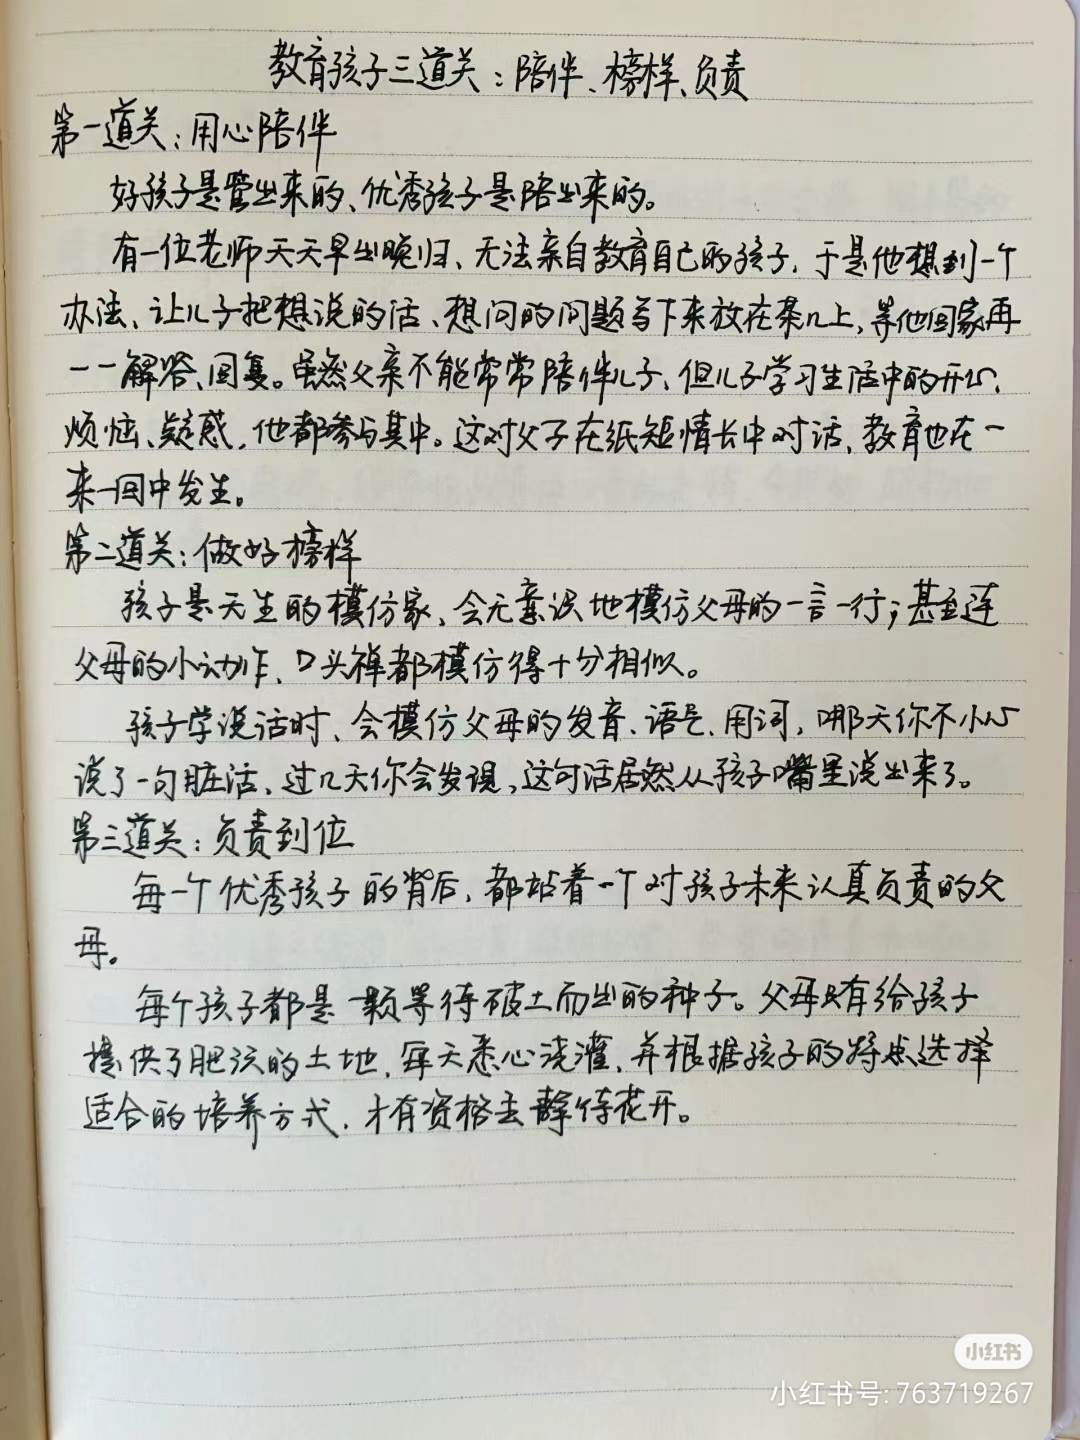 教育孩子三道关：陪伴、榜样、负责
第一道关：用心陪伴
好孩子是管出来的、优秀孩子是陪出来的。
有一位老师天天早出晚归、无法亲自教育自己的孩子，于是他想到一个
办法、让儿子把想说的话、想问的问题写下来放在茶几上，等他回家再
一一解答、回复。虽然父亲不能常常陪伴儿子、但儿子学习生活中的开心、
烦恼、疑惑，他都参与其中。这对父子在纸短情长中对话，教育也在一
来一回中发生。
第二道关：做好榜样
孩子是天生的模仿家，会无意识地模仿父母的一言一行；甚至连
父母的小动作、口头禅都模仿得十分相似。
孩子学说话时、会模仿父母的发音、语气、用词，哪天你不小心
说了一句脏话、过几天你会发现，这句话居然从孩子嘴里说出来了。
第三道关：负责到位
每一个优秀孩子的背后，都站着一个对孩子未来认真负责的父
母。
每个孩子都是一颗等待破土而出的种子。父母只有给孩子
提供了肥沃的土地，每天悉心浇灌，并根据孩子的特点选择
适合的培养方式，才有资格去静待花开。
小红书
小红书号: 763719267